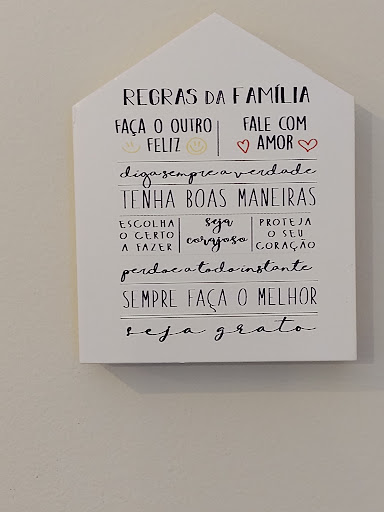 REGRAS DA FAMÍLIA
FAÇA O OUTRO FELIZ
FALE COM AMOR
diga sempre a verdade
TENHA BOAS MANEIRAS
ESCOLHA O CERTO A FAZER
seja corajoso
PROTEJA O SEU CORAÇÃO
perdoe a todo instante
SEMPRE FAÇA O MELHOR
seja grato